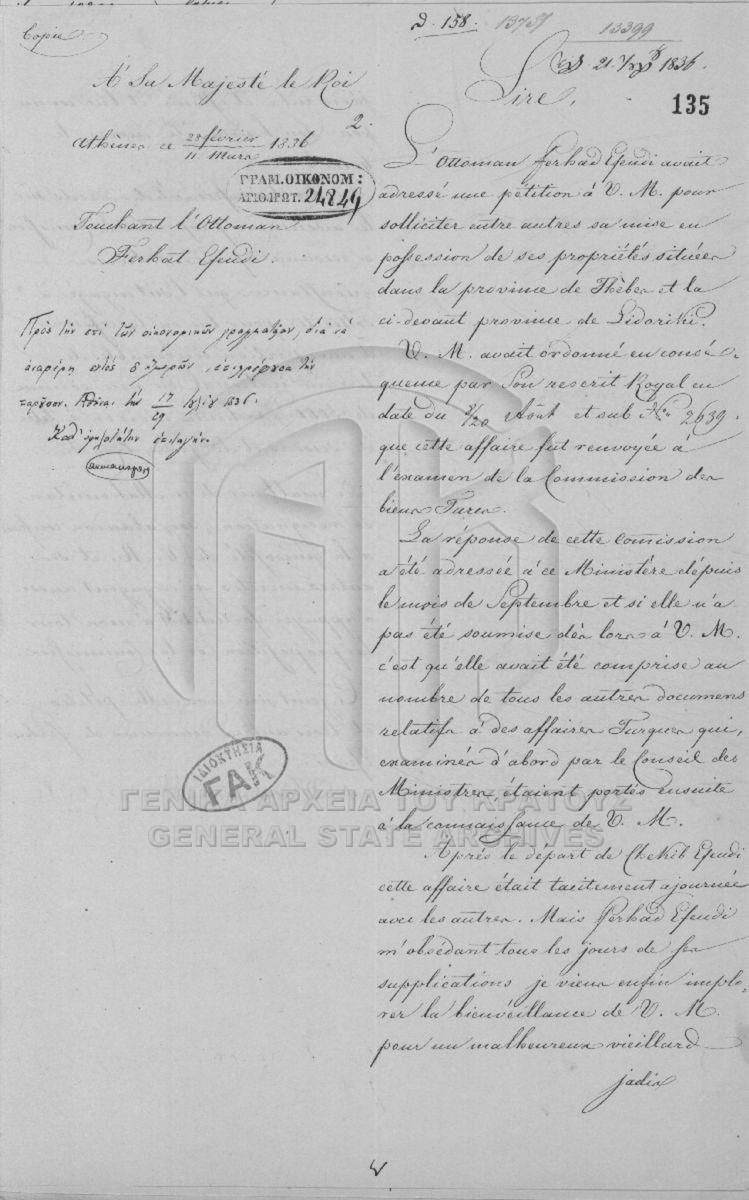 Copie
D. 158. 13751 13399
21 1836.
135
A Sa Majesté le Roi
2.
Athènes ce 28 février / 11 Mars 1836
ΓΡΑΜ. ΟΙΚΟΝΟΜ:
ΑΡΙΘ. ΠΡΩΤ. 24849
Touchant l'Ottoman
Ferhat Efendi.
Πρὸς τὴν ἐπὶ τῶν οἰκονομικῶν γραμματείαν, διὰ νὰ
ἀναφέρῃ ἐντὸς ἡμερῶν, ἐπιστρέφουσα τὴν
παροῦσαν. Ἀθῆναι τὴν 17/29 1836.
Καθ' ὑψηλοτάτην ἐπιταγήν
Sire,
L'Ottoman Ferhad Efendi avait
adressé une pétition à V. M. pour
solliciter entre autres sa mise en
possession de ses propriétés situées
dans la province de Thèbes et la
ci-devant province de Lidoriki.
V. M. avait ordonné en consé-
quence par Son rescrit Royal en
date du 8/20 Août et sub No 2639.
que cette affaire fut renvoyée à
l'examen de la Commission des
biens Turcs.
La réponse de cette comission
a été adressée à ce Ministère dépuis
le mois de Septembre et si elle n'a
pas été soumise dès lors à V. M.
c'est qu'elle avait été comprise au
nombre de tous les autres documens
relatifs à des affaires Turques qui,
examinés d'abord par le Conseil des
Ministres étaient portés ensuite
à la connaissance de V. M.
Après le départ de Chekib Efendi
cette affaire était tacitement ajournée
avec les autres. Mais Ferhad Efendi
m'obsédant tous les jours de ses
supplications je viens enfin implo-
rer la bienvéillance de V. M.
pour un malheureux vieillard
jadis
ΙΔΙΟΚΤΗΣΙΑ
ΓΑΚ
ΓΕΝΙΚΑ ΑΡΧΕΙΑ ΤΟΥ ΚΡΑΤΟΥΣ
GENERAL STATE ARCHIVES